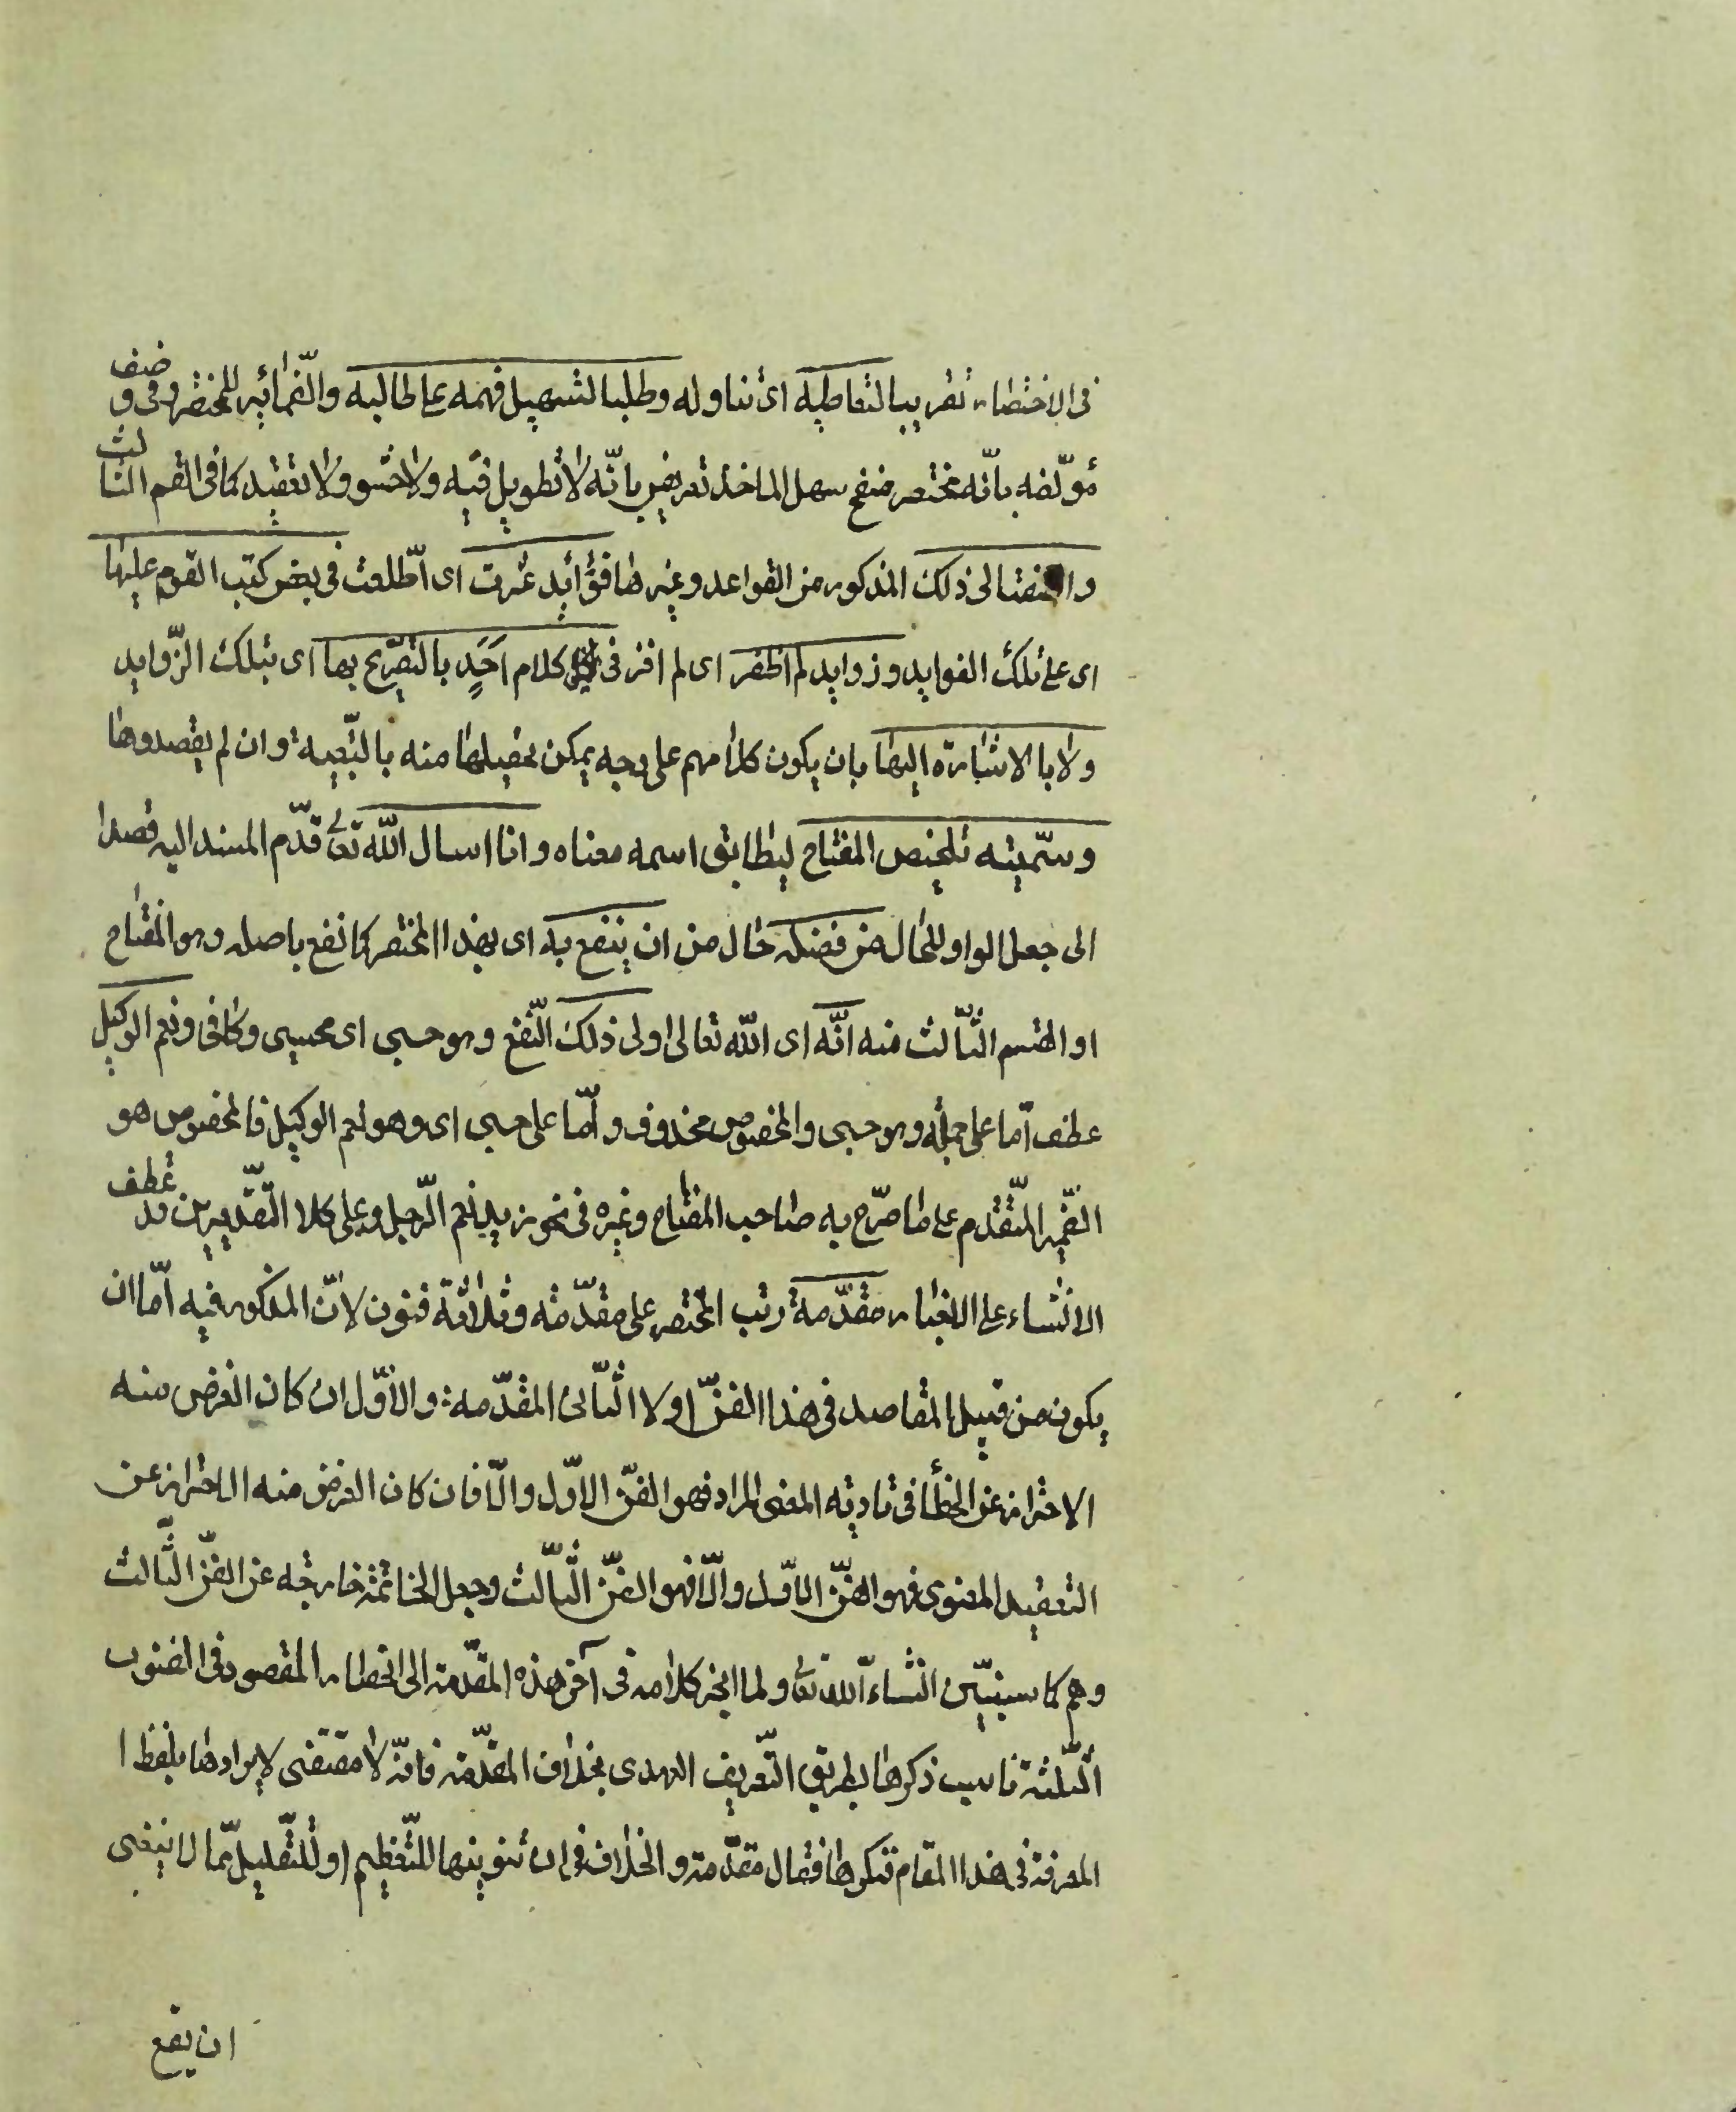 فى الاختصار تقريبا لتعاطيه اى تناوله وطلبا لتسهيل فهمه على طالبيه والضمائر للمختصر وفى وصف
مؤلفه بانّه مختصر منقح سهل الماخذ تعريض بانّه لا تطويل فيه ولا حشو ولا تعقيد كما فى القسم الثالث
واضفت الى ذلك المذكور من القواعد وغيرها فوائد عثرت اى اطّلعت فى بعض كتب القوم عليها
اى على تلك الفوايد وزوايد لم اظفر اى لم افز فى كلام احدٍ بالتصريح بها اى بتلك الزّوايد
ولا بالاشارة اليها بان يكون كلامهم على وجه يمكن تحصيلها منه بالتبعية وان لم يقصدوها
وسمّيته تلخيص المفتاح ليطابق اسمه معناه وانا اسال اللّه تعالى قدّم المسند اليه قصدا
الى جعل الواو للحال من فضله حال من ان ينفع به اى بهذا المختصر كما نفع باصله وهو المفتاح
او القسم الثّالث منه انّه اى اللّه تعالى اولى ذلك النّفع وهو حسبى اى محسبى وكافى ونعم الوكيل
عطف امّا على جملة وهو حسبى والمخصوص محذوف وامّا على حسبى اى وهو نعم الوكيل فالمخصوص هو
الضّمير المتقدم على ما صرّح به صاحب المفتاح وغيره فى نحو زيد نعم الرّجل وعلى كلا التّقديرين قد عطف
الانشاء على الاخبار مقدّمة رتب المختصر على مقدّمة وثلاثة فنون لانّ المذكور فيه امّا ان
يكون من قبيل المقاصد فى هذا الفنّ او لا الثّانى المقدّمة والاوّل ان كان الغرض منه
الاحتراز عن الخطأ فى تادية المعنى المراد فهو الفنّ الاوّل والّا فان كان الغرض منه الاحتراز عن
التعقيد المعنوى فهو الفنّ الاوّل والّا فهو الفنّ الثّالث وجعل الخاتمة خارجة عن الفنّ الثّالث
وهم كما سنبيّن انشاء اللّه تعالى ولما انجر كلامه فى آخر هذه المقدّمة الى انحصار المقصود فى الفنون
الثّلثة ناسب ذكرها بطريق التّعريف العهدى بخلاف المقدّمة فانّه لا مقتضى لايرادها بلفظ ا
المعرفة فى هذا المقام فنكرها فقال مقدّمة والخلاف فى ان تنوينها للتّعظيم او للتّقليل ممّا لا ينبغى
ان يقع